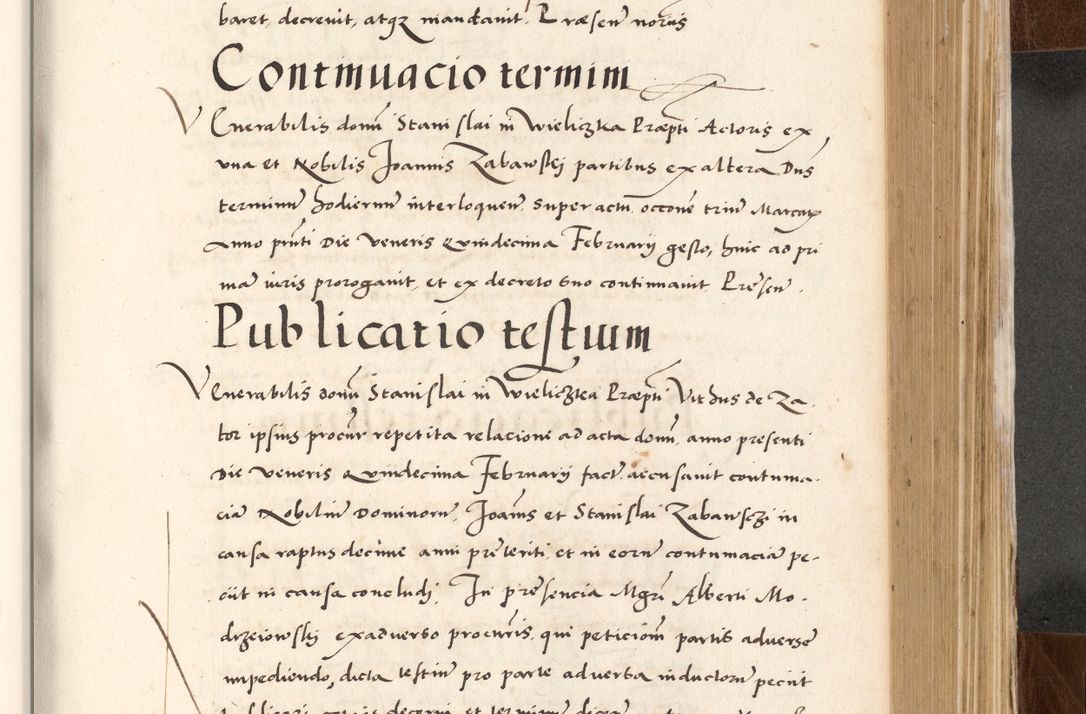 baret, decrevit, atqz mandavit. Præsen notriis
Continuacio termini
Venerabilis domi Stanislai in Wieliczka Præpti Actoris ex
una et Nobilis Joannis Zabawski partibus ex altera Dns
terminu hodiernu interloquen. super actu occone triu Marcarz
Anno pnti Die Veneris Quindecima Februarij gesto, huic ad pri
ma iuris prorogavit, et ex decreto suo continuavit. Præsen.
Publicatio testium
Venerabilis domi Stanislai in Wieliczka Præpti Vit dus de Za
tor ipsius procur repetita relacione ad acta domi, anno presenti
Die Veneris Quindecima Februarij fact. accusavit contuma
cia Nobiliu Dominoru, Joanis et Stanislai Zabawsczi in
causa raptus decime anni preteriti, et in eoru contumacia pe-
ciit in causa concludi. In presencia Mgri Alberti Mo-
drzeiowski exadverso procuris, qui peticiom partis adverse
impediendo, dicta testiu pro parte adversa inductoru peciit
decerni et terminu